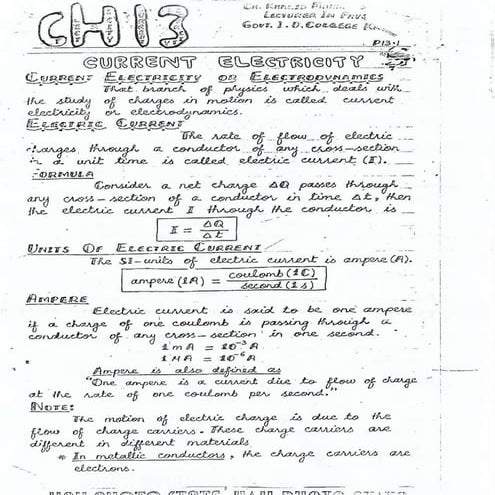 CH 13
LECTURER IN
GOVT. I. D. COLLEGE
P13.1
CURRENT ELECTRICITY
CURRENT ELECTRICITY OR ELECTRODYNAMICS
That branch of physics which deals with
the study of charges in motion is called current
electricity or electrodynamics.
ELECTRIC CURRENT
The rate of flow of electric
charges through a conductor of any cross-section
in a unit time is called electric current (I).
FORMULA
Consider a net charge ΔQ passes through
any cross-section of a conductor in time Δt, then
the electric current I through the conductor is
I = ΔQ/Δt
UNITS OF ELECTRIC CURRENT
The SI-units of electric current is ampere (A).
ampere (1A) = coulomb (1C)/second (1s)
AMPERE
Electric current is said to be one ampere
if a charge of one coulomb is passing through a
conductor of any cross-section in one second.
1 mA = 10⁻³ A
1 μA = 10⁻⁶ A
Ampere is also defined as
"One ampere is a current due to flow of charge
at the rate of one coulomb per second."
NOTE:
The motion of electric charge is due to the
flow of charge carriers. These charge carriers are
different in different materials
* In metallic conductors, the charge carriers are
electrons.